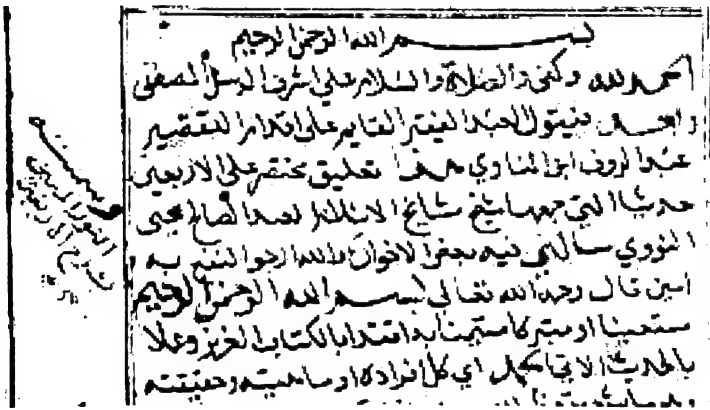 بسم الله الرحمن الرحيم
الحمد لله وكفى والصلاة والسلام على اشرف الرسل المصطفى
وبعد فيقول العبد الفقير القايم على اقدام التقصير
عبد الروف ابن المناوي هذا تعليق مختصر على الاربعين
حديثا التي جمعها شيخ مشايخ الاسلام العبد الصالح محيى
النووي سالني فيه بعض الاخوان والله ارجو النفع به
امين قال رحمه الله تعالى بسم الله الرحمن الرحيم
مستعينا او متبركا مستيمنا به اقتدا بالكتاب العزيز وعملا
بالحديث الاتي اي كل افراده او ماهيته وحقيقته
وسمته
النور المبين
شرح الاربعين